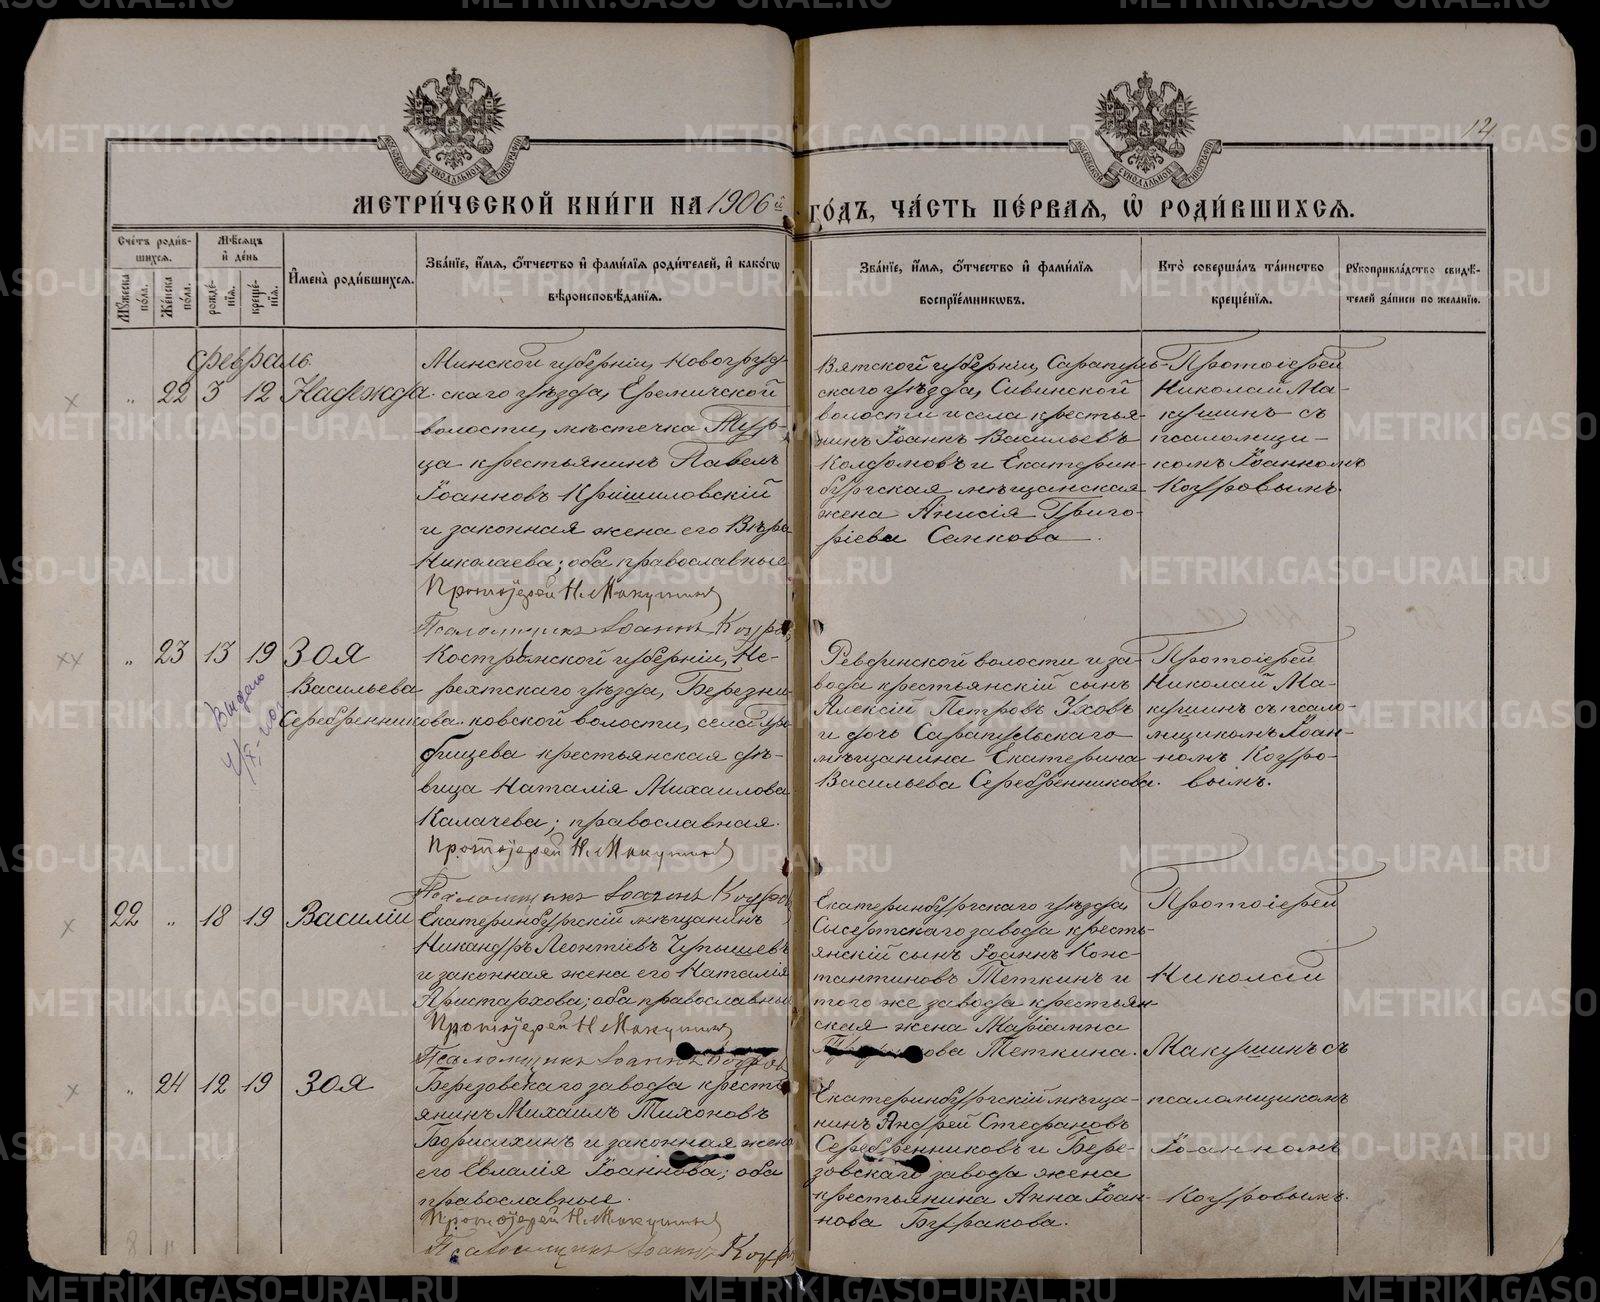 12
МЕТРИ́ЧЕСКОЙ КНИ́ГИ НА 1906й ГО́ДЪ, ЧА́СТЬ ПЕ́РВАЯ, Ѡ҆ РОДИ́ВШИХСѦ.
Сче́тъ роди́вшихся.
Му́жеска по́ла.
Же́нска по́ла.
Мѣ́сяцъ и҆ де́нь
рожде́нїя.
креще́нїя.
И҆мена̀ роди́вшихся.
Зва́нїе, и҆́мя, ѻ҆́тчество и҆ фами́лїя роди́телей, и҆ како́гѡ
вѣроисповѣ́данїя.
Зва́нїе, и҆́мя, ѻ҆́тчество и҆ фами́лїя
воспрїе́мникѡвъ.
Кто̀ соверша́лъ та́инство
креще́нїя.
Рꙋкоприкла́дство свидѣ́-
телей за́писи по жела́нїю.
Февраль.
" 22 3 12 Надежда.
Минской губерніи, Новогруд-
скаго уѣзда, Еремичской
волости, мѣстечка Тур-
ца крестьянинъ Павелъ
Іоанновъ
и законная жена его Вѣра
Николаева; оба православные
Протоіерей Н. Макушинъ
Псаломщикъ Іоаннъ Коуро
Вятской губерніи, Сарапуль-
скаго уѣзда, Сивинской
волости и села крестья-
нинъ Іоаннъ Васильевъ
и Екатерин-
бургская мѣщанская
жена Анисія Григо-
ріева Сенкова.
Протоіерей
Николай Ма-
кушинъ съ
псаломщи-
комъ Іоанномъ
Коуровымъ.
" 23 13 19 Зоя
Васильева
Серебренникова.
Костромской губерніи, Не-
рехтскаго уѣзда, Березни-
ковской волости, села
крестьянская дѣ-
вица Наталія Михаилова
Калачева; православная.
Протоіерей Н. Макушинъ
Псаломщикъ Іоаннъ Коуро
Ревдинской волости и за-
вода крестьянскій сынъ
Алексій Петровъ Уховъ
и дочь Сарапульскаго
мѣщанина Екатерина
Васильева Серебренникова.
Протоіерей
Николай Ма-
кушинъ съ псало-
мщикомъ Іоан-
номъ Коуро-
вымъ.
22 " 18 19 Василій
Екатеринбургскій мѣщанинъ
Никандръ Леонтіевъ Чупышевъ
и законная жена его Наталія
Аристархова; оба православные
Протоіерей Н. Макушинъ
Псаломщикъ Іоаннъ Коуров
Екатеринбургскаго уѣзда
Сысертскаго завода кресть-
янскій сынъ Іоаннъ Конс-
тантиновъ Теткинъ и
того же завода крестьян-
ская жена Маріамна
Теткина.
Протоіерей
Николай
Макушинъ съ
" 24 12 19 Зоя
Березовскаго завода кресть-
янинъ Михаилъ Тихоновъ
Борисихинъ и законная жена
его Евлалія Іоаннова; оба
православные.
Протоіерей Н. Макушинъ
Псаломщикъ Іоаннъ Коуро
Екатеринбургскій мѣща-
нинъ Андрей Стефановъ
Серебренниковъ и Бере-
зовскаго завода жена
крестьянина Анна Іоан-
нова Буракова.
псаломщикомъ
Іоанномъ
Коуровымъ.
METRIKI.GASO-URAL.RU